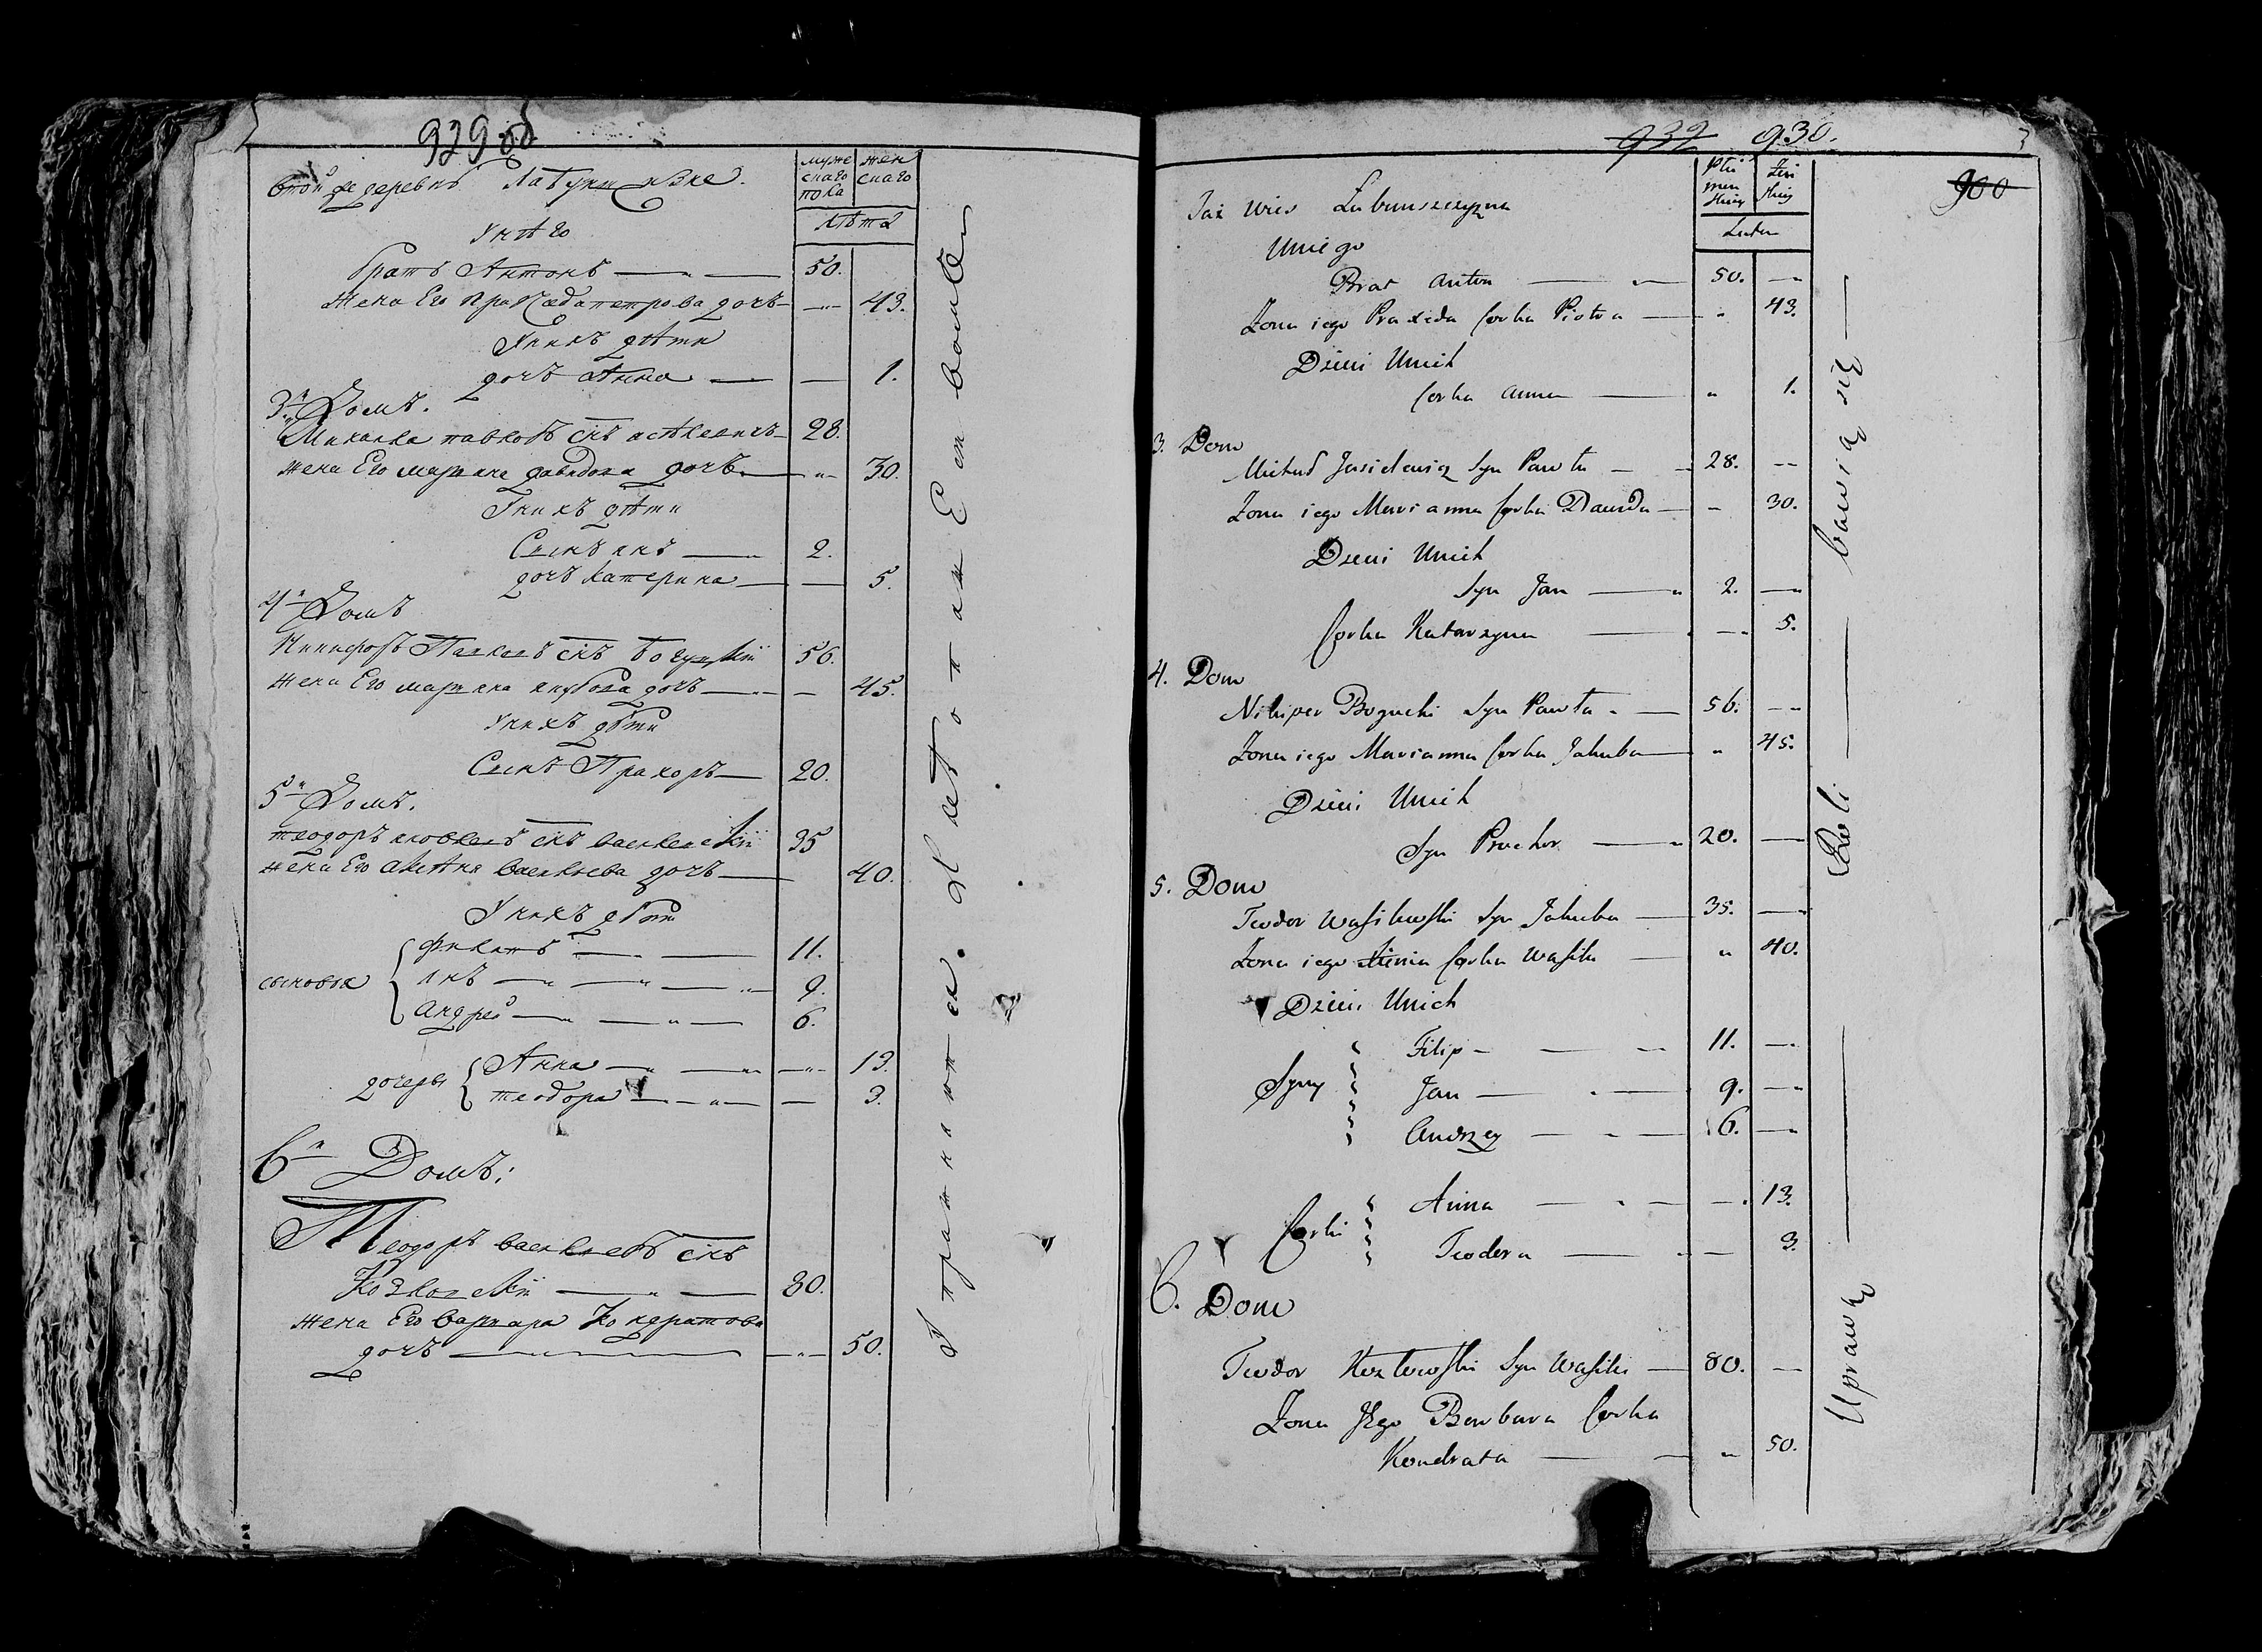 929 об
втой же деревнѣ
муже
скаго
пола
жен
скаго
лѣта
Унѣго
братъ Антонъ 50.
жена Его Праксѣда петрова дочъ 43.
Унихъ дѣти
дочъ Анна 1.
3й Домъ.
Михалка павловъ снъ 28.
жена Его марияна давидова дочъ 30.
Унихъ дѣти
Сынъ янъ 2.
дочъ катерина 5.
4й Домъ
Никифоръ Павловъ снъ Богуцкій 56.
жена Его марияна якубова дочъ 45.
Унихъ дѣти
Сынъ Прахоръ 20.
5й Домъ.
теодоръ яковлевъ снъ василевскій 35
жена Его васильева дочъ 40.
Унихъ дѣти
сыновья
Филипъ 11.
янъ 9.
Андрей 6.
дочеры
Анна 13.
теодора 3.
6й Домъ:
Теодоръ васильевъ снъ
Козловскій 80.
жена Его варвара Кондратова
дочъ 50.
932 930.
900
Taż wieś
Płci
męs
kiey
żeń
skiey
Lata
Uniego
Brat Anton 50.
Żona iego Praxeda Corka Piotra 43.
Dzieci Unich
Corka Anna 1.
3. Dom
Michał Jasielewicz Syn Pawła 28.
Żona iego Marianna Corka Dawida 30.
Dzieci Unich
Syn Jan 2.
Corka Katarzyna 5.
4. Dom
Nikiper Bogucki Syn Pawła 56.
Żona iego Marianna Corka Jakuba 45.
Dzieci Unich
Syn Prochor 20.
5. Dom
Teodor Wasilewski Syn Jakuba 35.
Żona iego Corka Wasila 40.
Dzieci Unich
Syny
Filip 11.
Jan 9.
Andrzey 6.
Corki
Anna 13.
Teodora 3.
6. Dom
Teodor Kozłowski Syn Wasila 80.
Żona Jego Barbara Corka
Kondrata 50.
Uprawą Roli bawią się